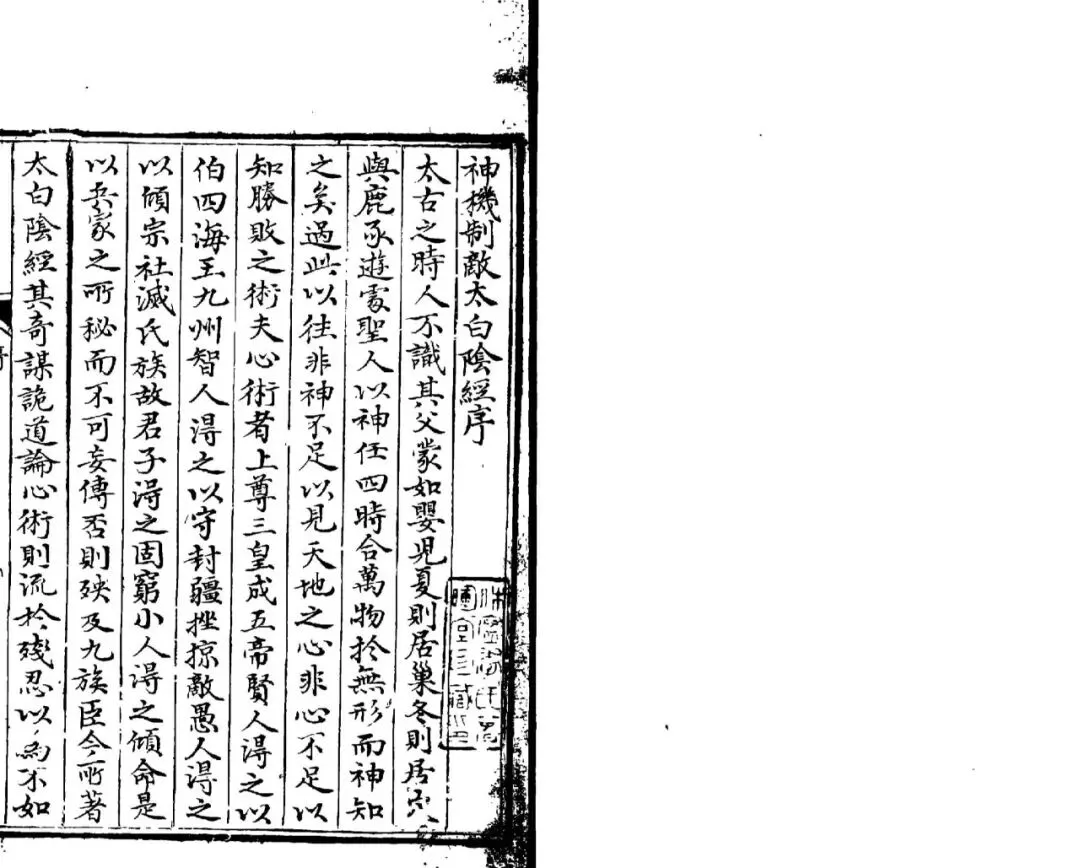 神機制敵太白陰經序
太古之時人不識其父蒙如嬰兒夏則居巢冬則居穴
與鹿豕遊處聖人以神任四時合萬物於無形而神知
之矣過此以往非神不足以見天地之心非心不足以
知勝敗之術夫心術者上尊三皇成五帝賢人得之以
伯四海王九州智人得之以守封疆挫掠敵愚人得之
以傾宗社滅氏族故君子得之固窮小人得之傾命是
以兵家之所秘而不可妄傳否則殃及九族臣今所著
太白陰經其奇謀詭道論心術則流於殘忍以為不如
序